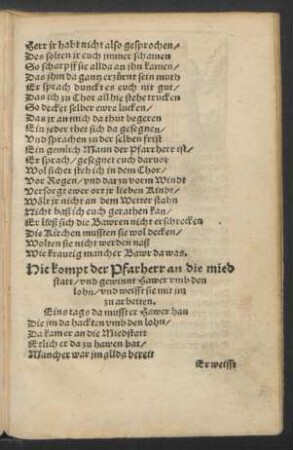 Herr jr habt nicht also gesprochen/
Des solten jr euch immer schamen
So scharpff sie allda an jhn kamen/
Das jhm da gantz erzürnt sein muth
Er sprach dunckt es euch nit gut/
Das ich zu Chor allhie stehe trucken
So decket selber ewre lucken/
Das jr an mich da thut begeren
Ein jeder thet sich da gesegnen/
Vnd sprachen zu der selben frist
Ein gemlich Mann der Pfarrherr ist/
Er sprach/ gesegnet euch daruor
Wol sicher steh ich in dem Chor/
Vor Regen/ vnd dar zu vorm Windt
Versorgt ewer ort jr lieben Kindt/
Wölt jr nicht an dem Wetter stahn
Nicht baß ich euch gerathen kan/
Er ließ sich die Bawren nicht erschrecken
Die Kirchen mussten sie wol decken/
Wolten sie nicht werden naß
Wie krautig mancher Bawr da was.
Hie kompt der Pfarherr an die mied
statt/ vnd gewinnt Hawer vmb den
lohn/ vnd weisst sie mit jm
zu arbeiten.
Eins tags da musster Hawer han
Die jm da hackten vmb den lohn/
Da kam er an die Miedstatt
Etlich er da zu hawen bat/
Mancher war jm allda bereit
Er weisst